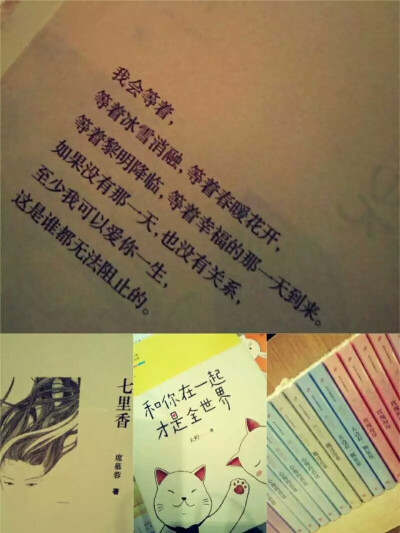 我会等着，
等着冰雪消融，等着春暖花开，
等着黎明降临，等着幸福的那一天到来。
如果没有那一天，也没有关系，
至少我可以爱你一生，
这是谁都无法阻止的。
七里香
席慕蓉 著
和你在一起
才是全世界